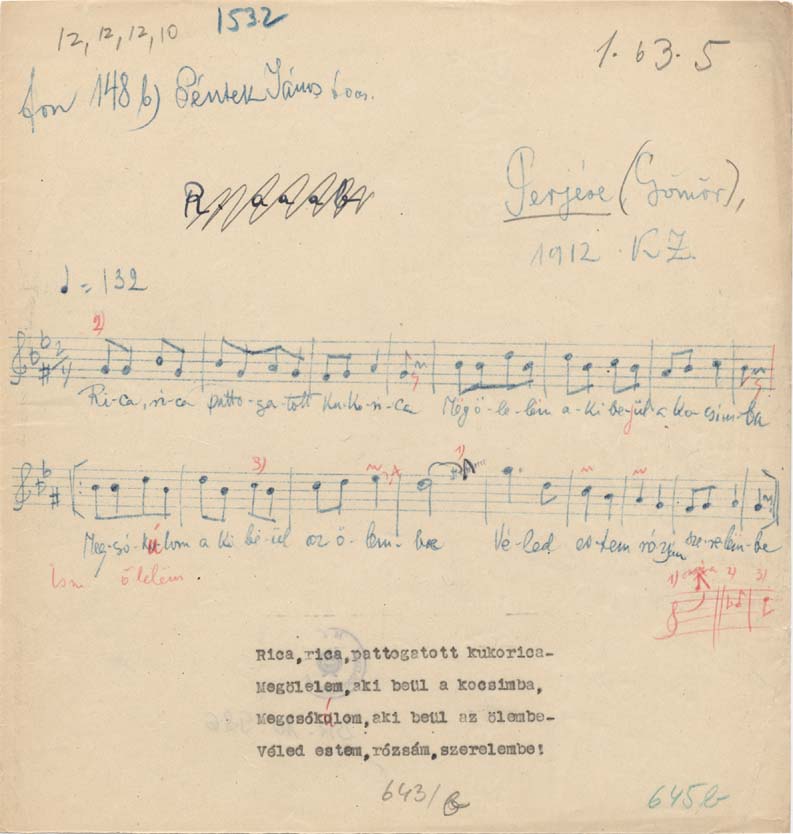 12, 12, 12, 10
1532
1. 63. 5
fon 148 b) Péntek János
Perjése (Gömör),
1912. K Z.
= 132
2)
2/4
Ri-ca, ri-ca patto-ga-tott ku-ko-ri-ca Megö-le-lem a-ki be-ül a ko-csim-ba
3) 1)
Meg-csó-kúlom a ki be-ül az ö-lem-be Vé-led es-tem rózsám sze-re-lem-be
ölelém
1) 2) 3)
Rica,rica,pattogatott kukorica-
Megölelem,aki beül a kocsimba,
Megcsókúlom,aki beül az ölembe-
Véled estem,rózsám,szerelembe!
643/b
645b